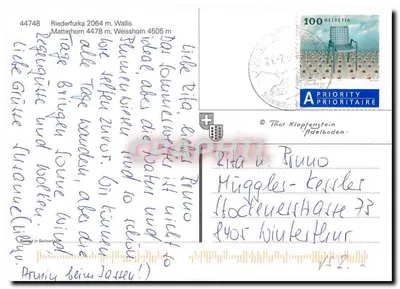 44748 Riederfurka 2064 m. Wallis
Matterhorn 4478 m, Weisshorn 4505 m
Liebe Rita, lieber Bruno
Das Sommerwetter ist nicht so
ideal, aber die Natur und
Blumenwiesen sind so schön
wie selten zuvor. Wir können
alle Tage wandern, aber die
Tage bringen Sonne, Wind,
Regengüsse und Wolken.
Liebe Grüsse Susanne
Armin beim Jassen!)
100 HELVETIA
A PRIORITY
PRIORITAIRE
© Thol Klopfenstein
Adelboden
Rita u. Bruno
Müggler-Kessler
Stockenerstrasse 73
8405 Winterthur